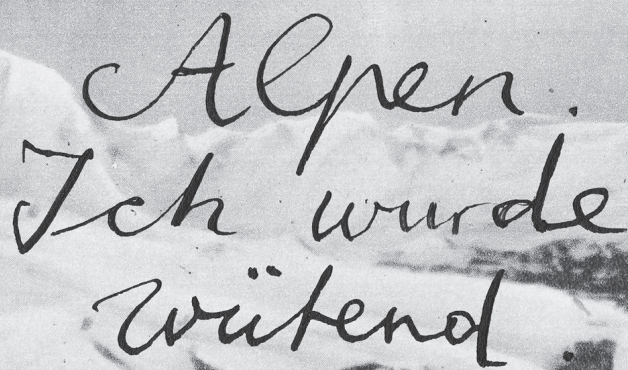 Alpen.
Ich wurde
wütend.